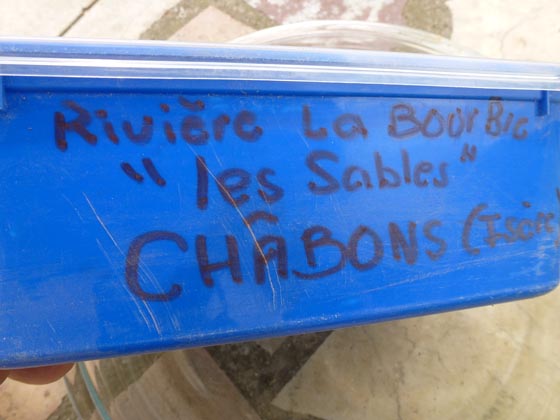 Rivière La BOURBRE
"les Sables"
CHÂBONS (Isère